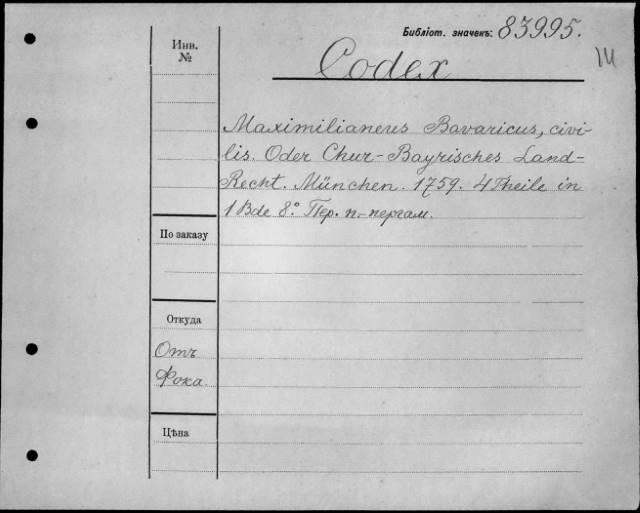 Библіот. значекъ: 83995.
Ш
Codex
Инв.
№
Maximilianeus Bavaricus, civi-
lis. Oder Chur-Bayrisches Land-
Recht. München. 1759. 4 Theile in
1 Bde 8.° Пер. п.-пергам.
По заказу
Откуда
Отъ
Фока.
Цѣна